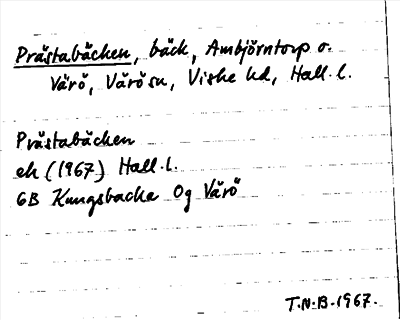 Prästabäcken, bäck, Ambjörntorp o.
Värö, Värö sn, Viske hd, Hall. l.
Prästabäcken
ek (1967) Hall. l.
6B Kungsbacka 0g Värö
T.N.B. 1967.